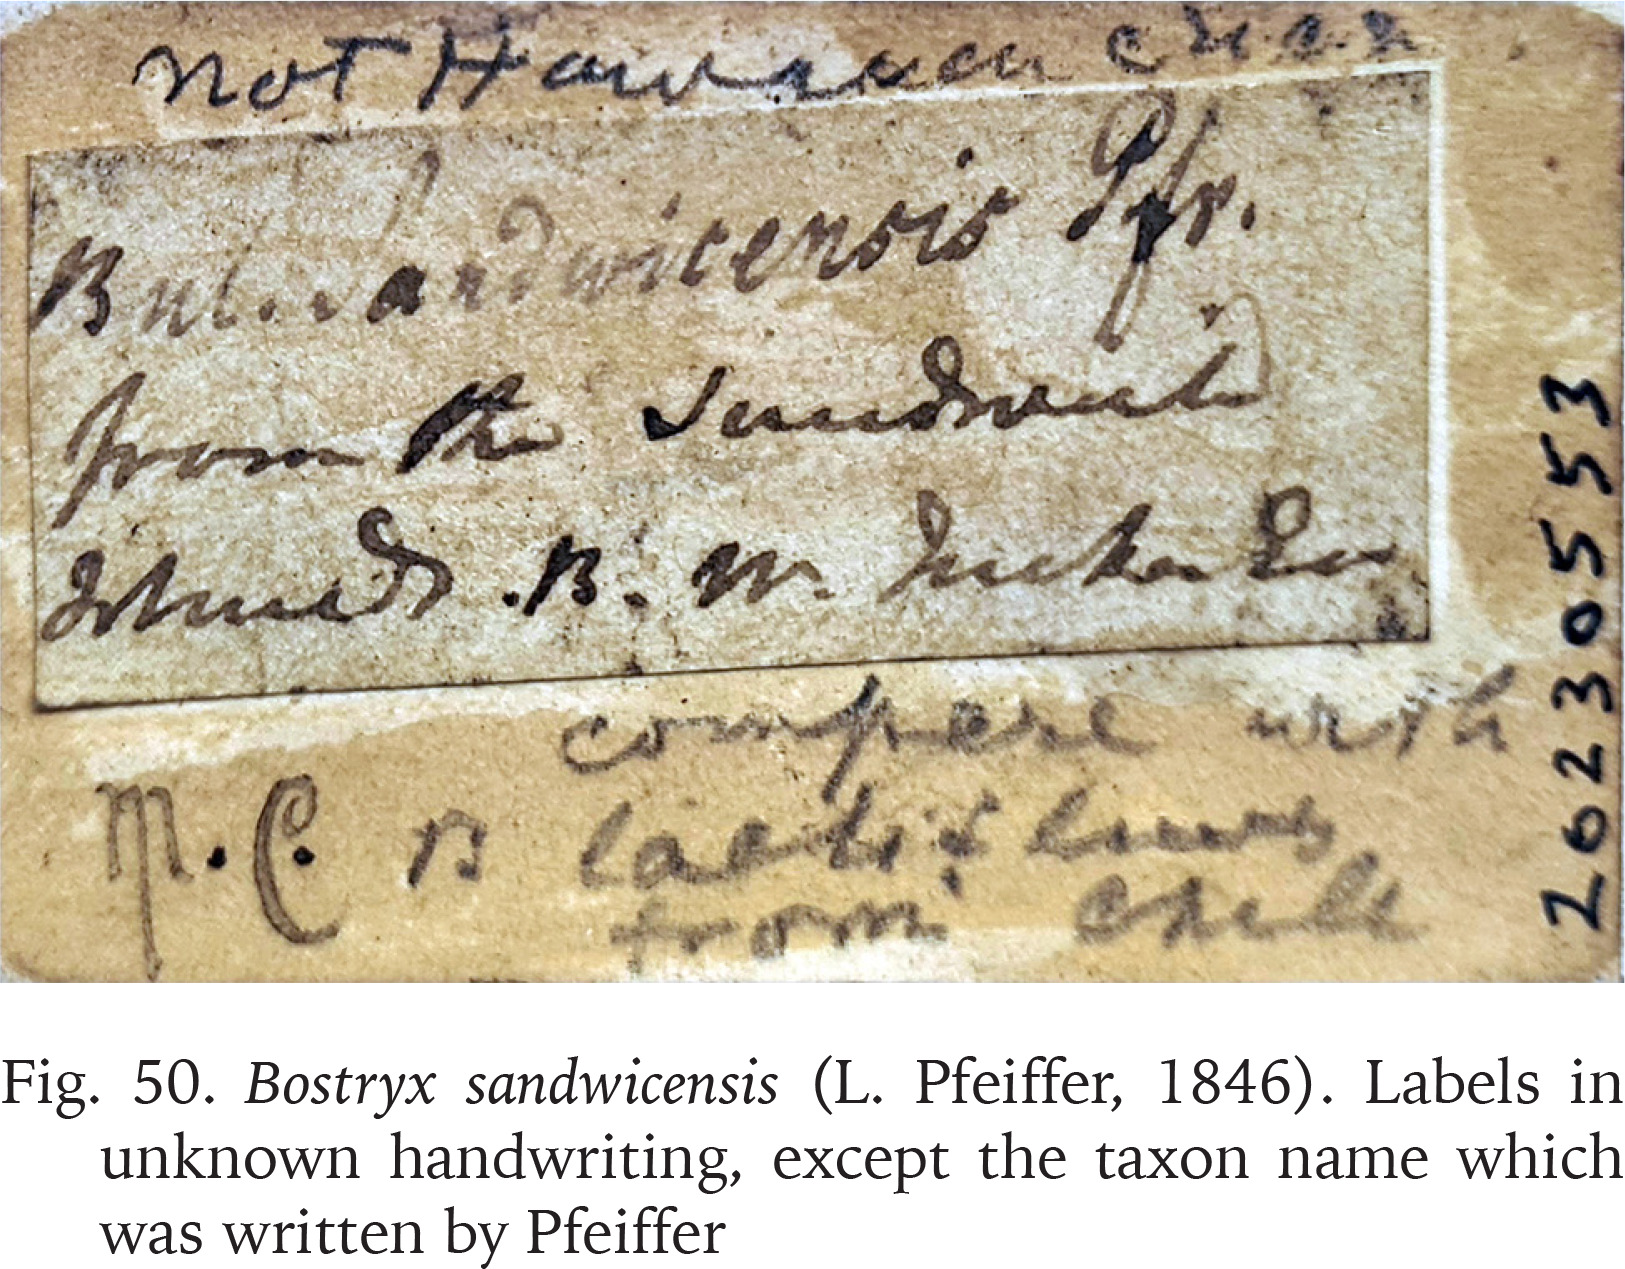 not Hawaiian
Bul. sandwicensis Pfr.
from the Sandwich
Islands. B. M.
compare with
M.C. B
from Chili
26230553
Fig. 50. Bostryx sandwicensis (L. Pfeiffer, 1846). Labels in
unknown handwriting, except the taxon name which
was written by Pfeiffer